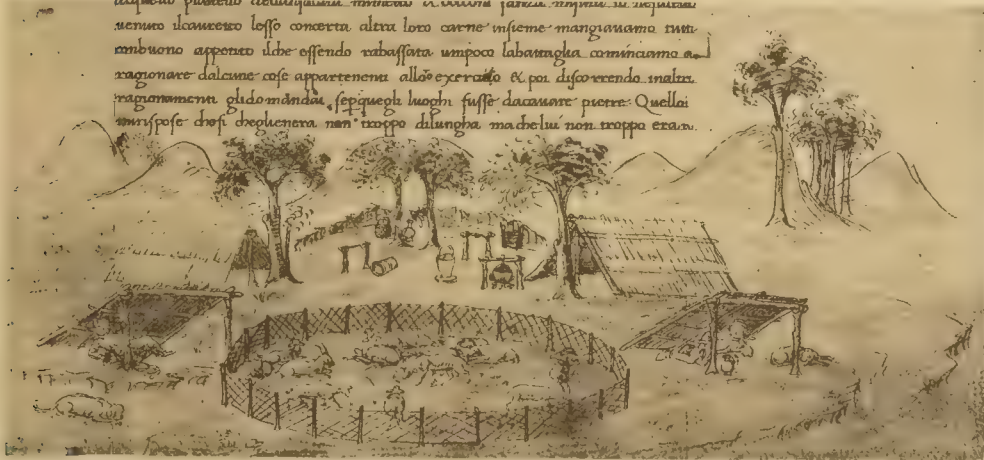 venuto ilcauretto lesso concerta altra loro carne insieme mangiauamo tutti
conbuono appetito ilche essendo rabassata umpoco labattaglia cominciamo a
ragionare dalcune cose appartenenti & poi discorrendo inaltri
ragionamenti glidomandai sepquegli luoghi fusse dacauare pietre. Quello
mirispose chesi cheglienera non troppo dilungha mache lui non troppo